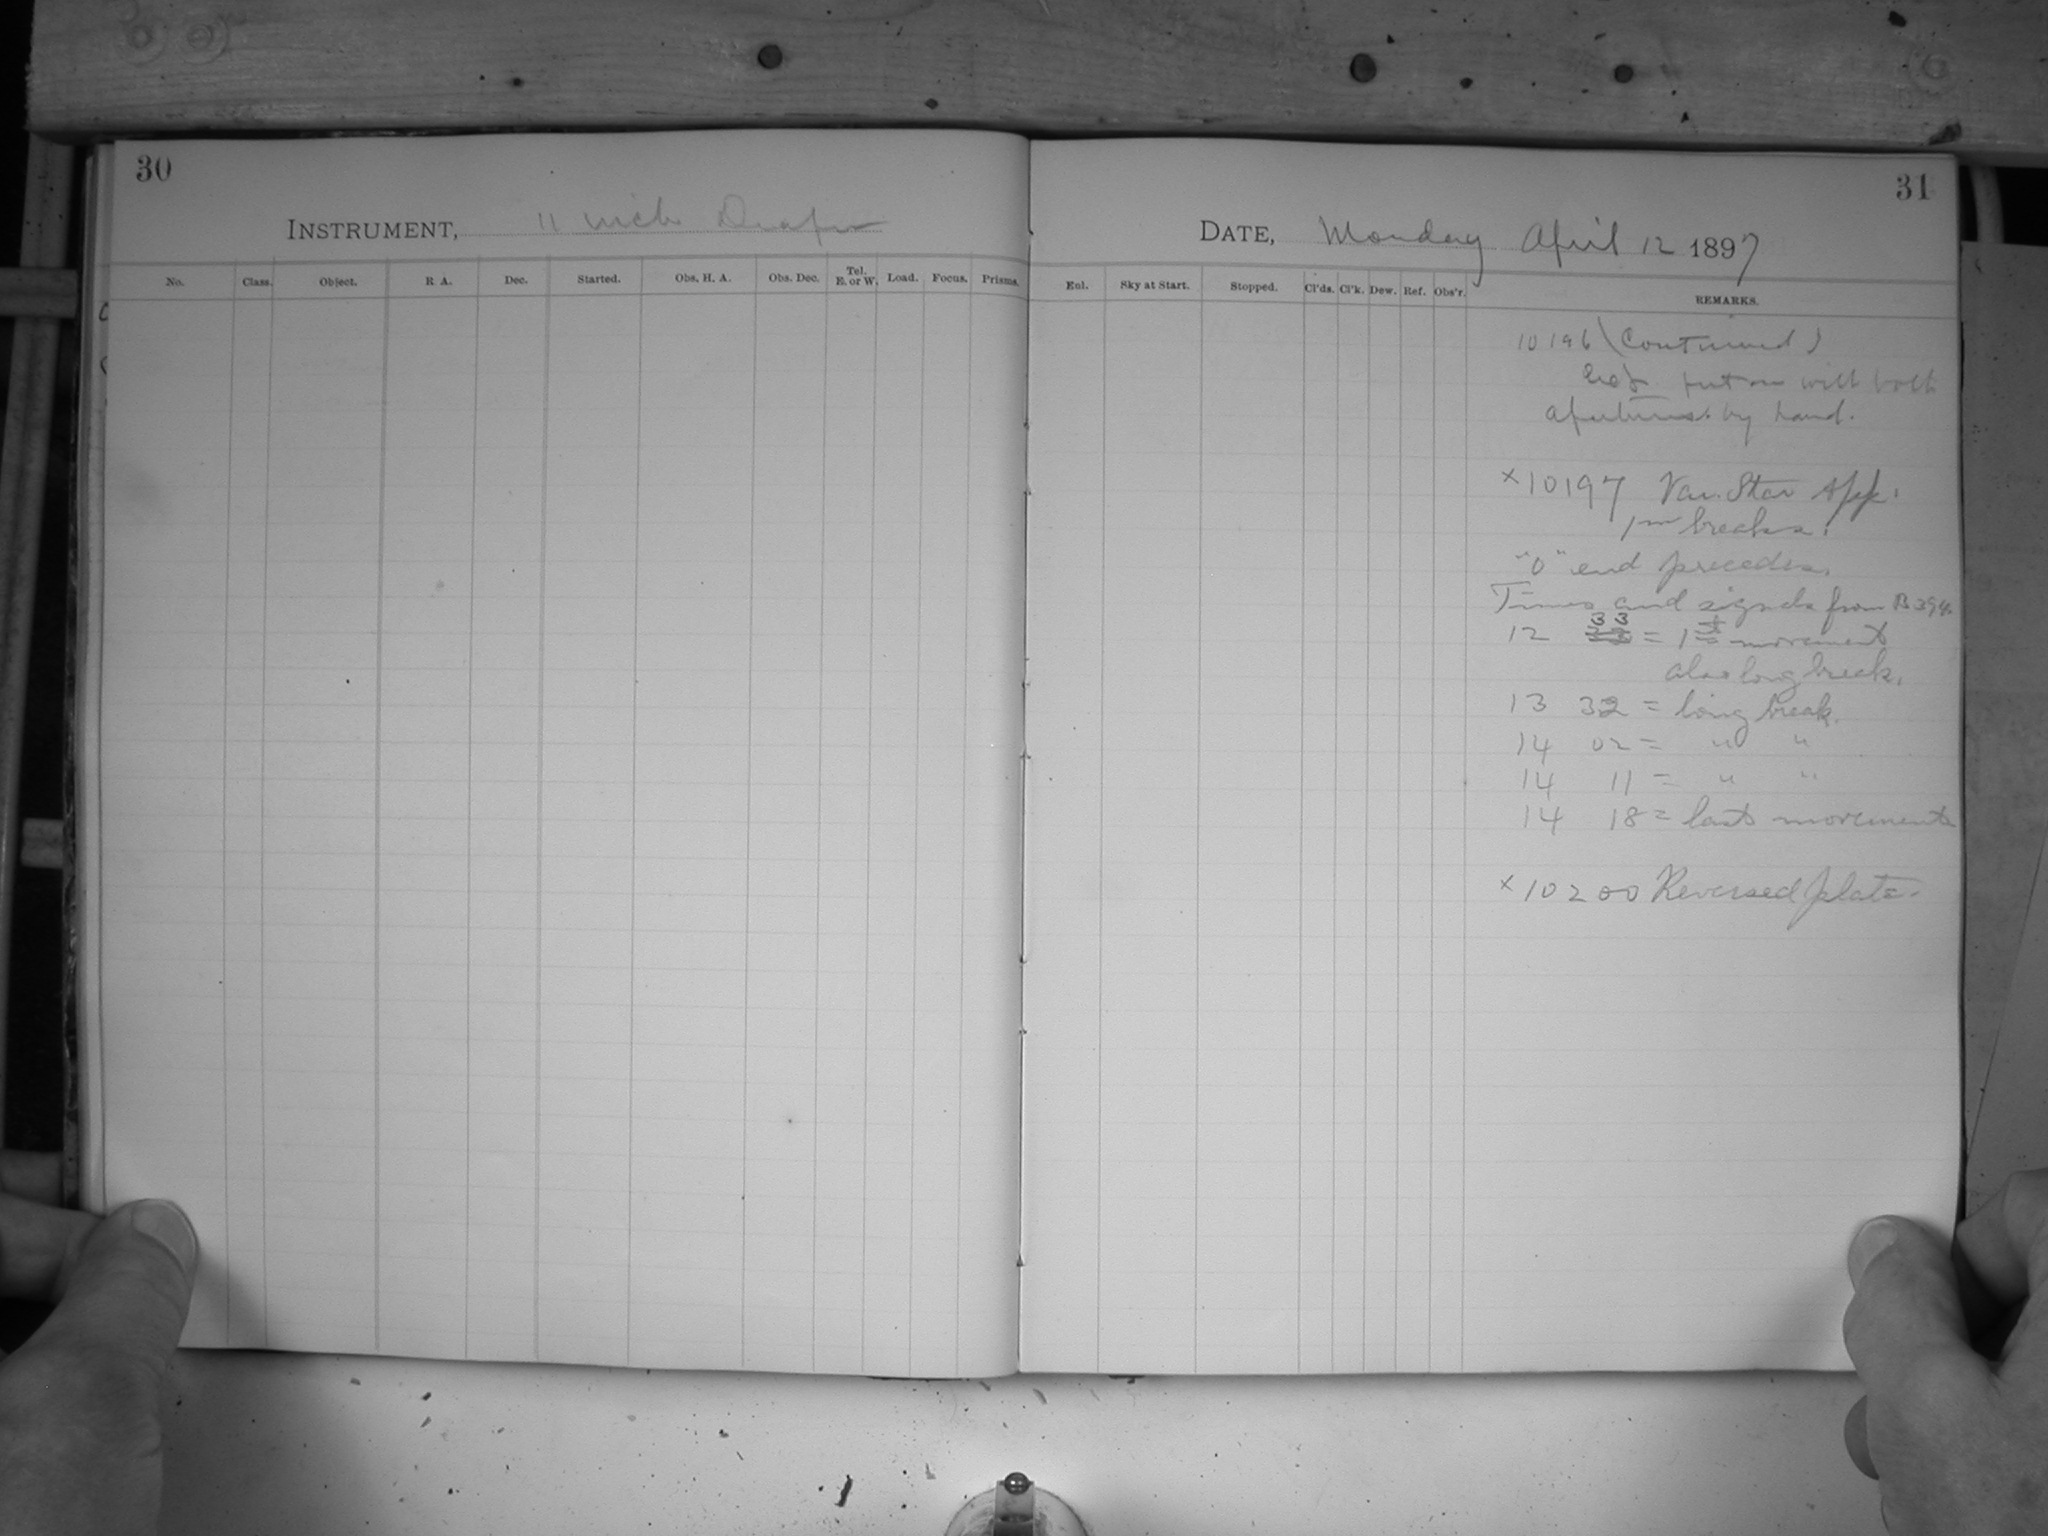 30
INSTRUMENT, 11 inch Draper
No. Class. Object. R A. Dec. Started. Obs. H. A. Obs. Dec. Tel. E. or W. Load. Focus. Prisms.
31
DATE, Monday April 12 1897
Eul. Sky at Start. Stopped. Cl'ds. Cl'k. Dew. Ref. Obs'r. REMARKS.
10196 (Continued)
put on with both
apertures by hand.
x 10197 Var. Star App.
1m breaks.
"0" end precedes.
Times and signals from B 394
12 33 = 1st movement
also long break.
13 32 = long break.
14 02 = " "
14 11 = " "
14 18 = last movement
x 10200 Reversed plate.